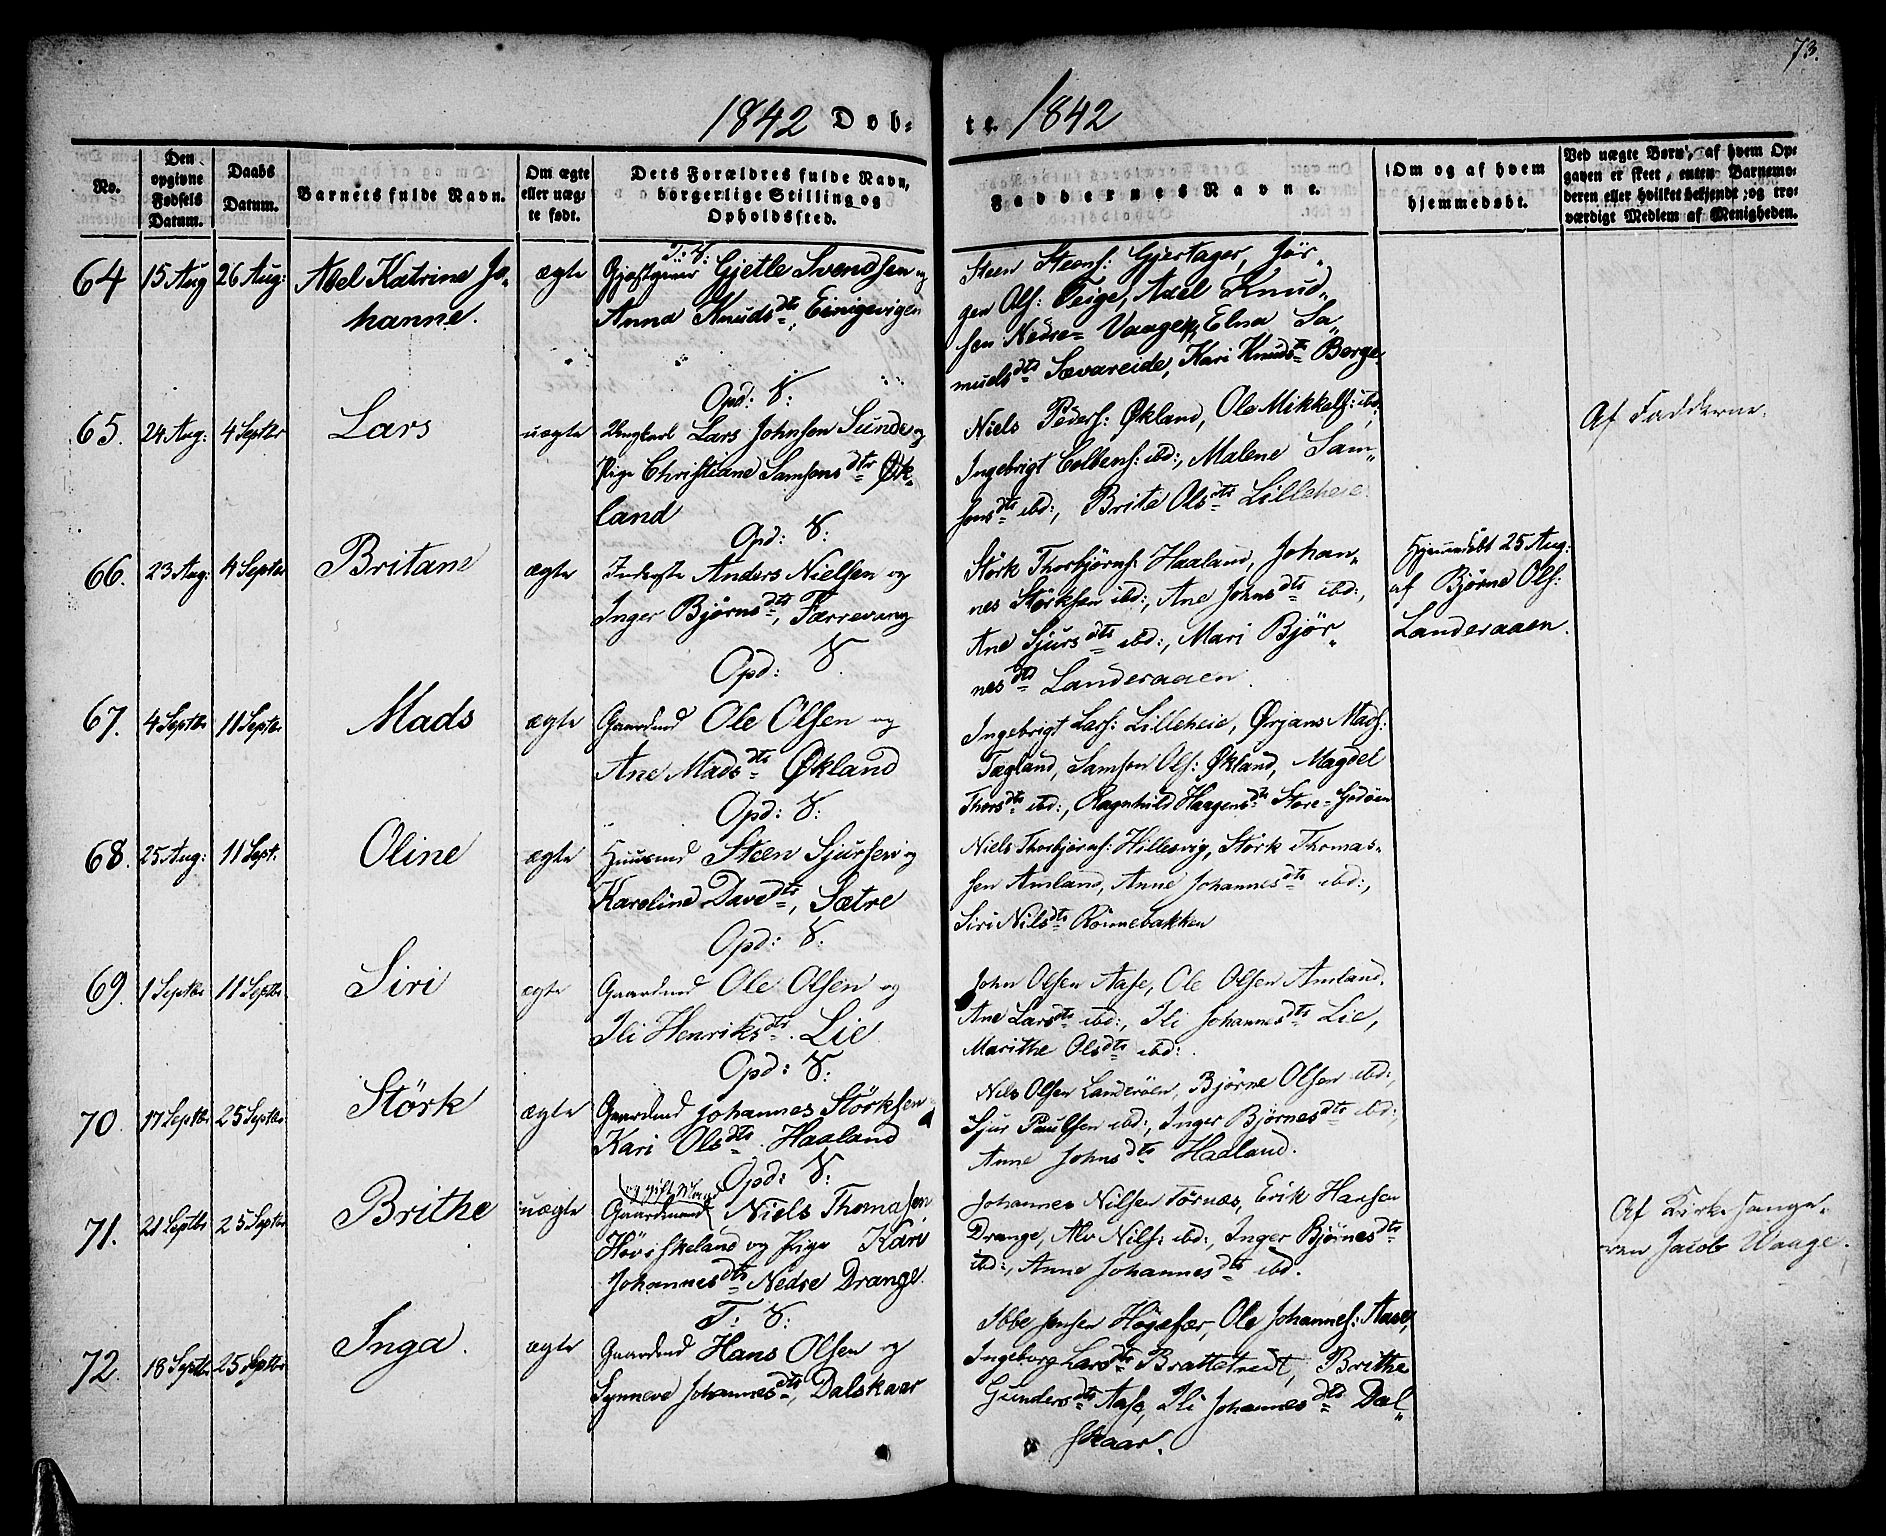 73.
1842 Døb-
te. 1842
No.
Den
opgivne
Fødsels
Datum.
Daabs
Datum.
Barnets fulde Navn.
Om ægte
eller uæg-
te født.
Dets Forældres fulde Navn,
borgerlige Stilling og
Opholdssted.
Faddernes Navne.
Om og af hvem
hjemmedøbt.
Ved uægte Børn, af hvem Op-
gaven er skeet, enten Barnemo-
deren eller hvilket bekjendt, og tro-
værdigt Medlem af Menigheden.
64 15 Aug 26 Aug: Abel Katrine Jo-
hanne.
ægte
T: S:
Gjæstgiver Gjetle Svendsen og
Anna Knudsdtr, Einigevigen
Steen Steens: Gjertager, Jör-
gen Ols: Teige, Axel Knud-
sen Nedre= Vaage, Elna Sa-
muelsdtr Sævareide, Kari Knudsdtr Berge
65. 24 Aug: 4 Septbr Lars uægte
Opd: S:
Ungkarl Lars Johnsen Sunde og
Pige Christiane Samsonsdtr Øk-
land
Niels Peders: Økland, Ole Mikkels: ibd:,
Ingebrigt Colbens: ibd:, Malene Sam-
sonsdtr ibd:, Brite Olsdtr Lilleheie
Af Fadderne.
66. 23 Aug: 4 Septbr Britane ægte
Opd: S:
Inderste Anders Nielsen og
Inger Bjørnsdtr, Færrevaag
Störk Thorbjörns: Haaland, Johan-
nes Störksen ibd:, Ane Johnsdtr ibd:,
Ane Sjursdtr ibd:, Mari Bjør-
nesdtr Landeraaen.
Hjemmedøbt 25 Aug:
af Bjørne Ols:
Landeraaen.
67. 4 Septbr 11 Septbr Mads ægte
Opd: S.
Gaardmd Ole Olsen og
Ane Madsdtr Økland
Ingebrigt Lars: Lilleheie, Ørjans Mads:
Tægland, Samson Ols: Økland, Magdel
Thorsdtr ibd:, Ragnhild Haagensdtr Store= Godøen
68. 25 Aug: 11 Sept. Oline ægte
Opd: S:
Huusmd Steen Sjursen og
Karoline Davedtr, Sætre
Niels Thorbjørns: Hillesvig, Störk Thomas-
sen Amland, Anne Johannesdtr ibd:,
Siri Nilsdtr Rönnebakken
69. 1 Septbr 11 Septbr Siri ægte
Opd: S:
Gaardmd Ole Olsen og
Ili Henriksdtr. Lie
John Olsen Aase, Ole Olsen Amland.
Ane Larsdtr ibd:, Ili Johannesdtr Lie,
Marithe Olsdtr ibd:.
70. 17 Septbr 25 Septbr Störk ægte
Opd: S:
Gaardmd Johannes Störksen
Kari Olsdtr. Haaland
Nils Olsen Landeröen, Bjørne Olsen ibd:,
Sjur Paulsen ibd:, Inger Bjørnesdtr ibd:,
Anne Johnsdtr Haaland.
71. 21 Septbr 25 Septbr Brithe uægte
Opd: S:
og gift Mand
Gaardmand Niels Thomasen
Höviskeland og Pige Kari
Johannesdtr Nedre Drange.
Johannes Nilsen Tørnæs, Erik Hansen
Drange, Alv Nils: ibd:, Inger Bjørnesdtr
ibd:, Anne Johannesdtr ibd.
Af Kirkesange-
ren Jacob Waage.
72. 18 Septbr 25 Septbr Inga. ægte
T: S:
Gaardmd Hans Olsen og
Synneve Johannesdtr, Dalskaar
Ibbe Jensen Høgefær, Ole Johannes: Aase,
Ingeborg Larsdtr Brattetredt, Brithe
Gundersdtr Aase, Ili Johannesdtr Dal-
skaar.